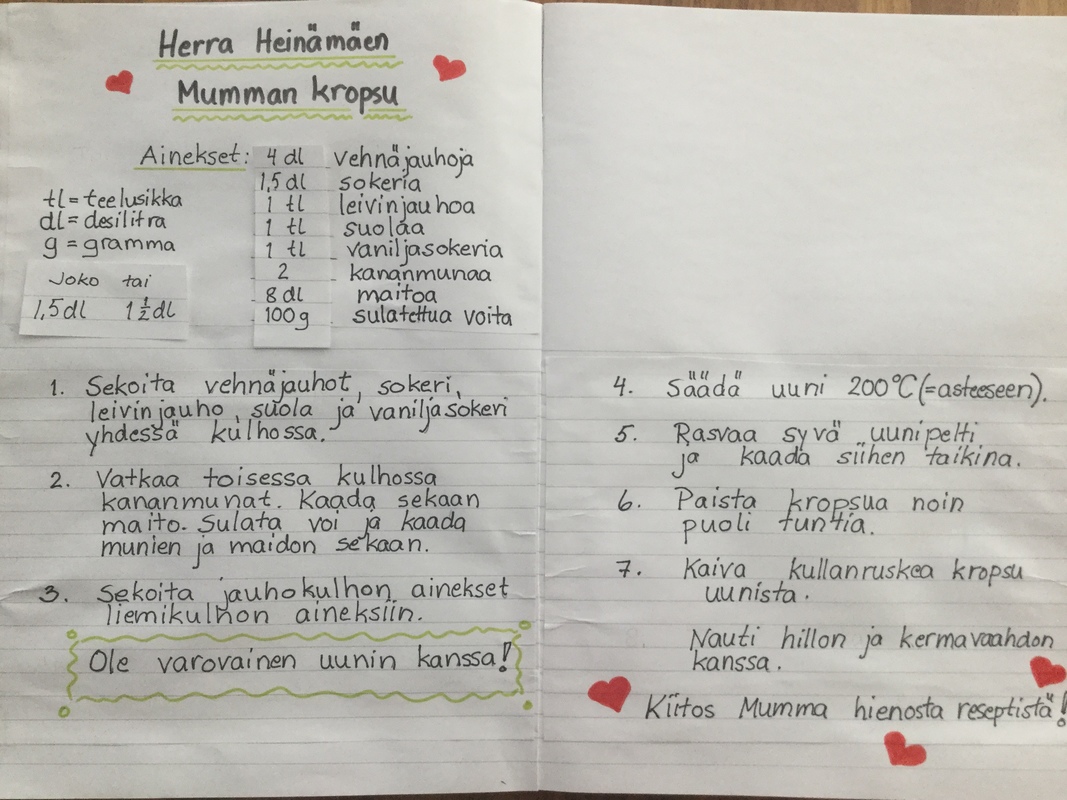 Herra Heinämäen
Mumman kropsu
Ainekset: 4 dl vehnäjauhoja
1,5 dl sokeria
1 tl leivinjauhoa
1 tl suolaa
1 tl vaniljasokeria
2 kananmunaa
8 dl maitoa
100g sulatettua voita
tl = teelusikka
dl = desilitra
g = gramma
Joko tai
1,5 dl 1 ½ dl
1. Sekoita vehnäjauhot, sokeri,
leivinjauho, suola ja vaniljasokeri
yhdessä kulhossa.
2. Vatkaa toisessa kulhossa
kananmunat. Kaada sekaan
maito. Sulata voi ja kaada
munien ja maidon sekaan.
3. Sekoita jauhokulhon ainekset
liemikulhon aineksiin.
Ole varovainen uunin kanssa!
4. Säädä uuni 200°C (=asteeseen).
5. Rasvaa syvä uunipelti
ja kaada siihen taikina.
6. Paista kropsua noin
puoli tuntia.
7. Kaiva kullanruskea kropsu
uunista.
Nauti hillon ja kermavaahdon
kanssa.
Kiitos Mumma hienosta reseptistä!